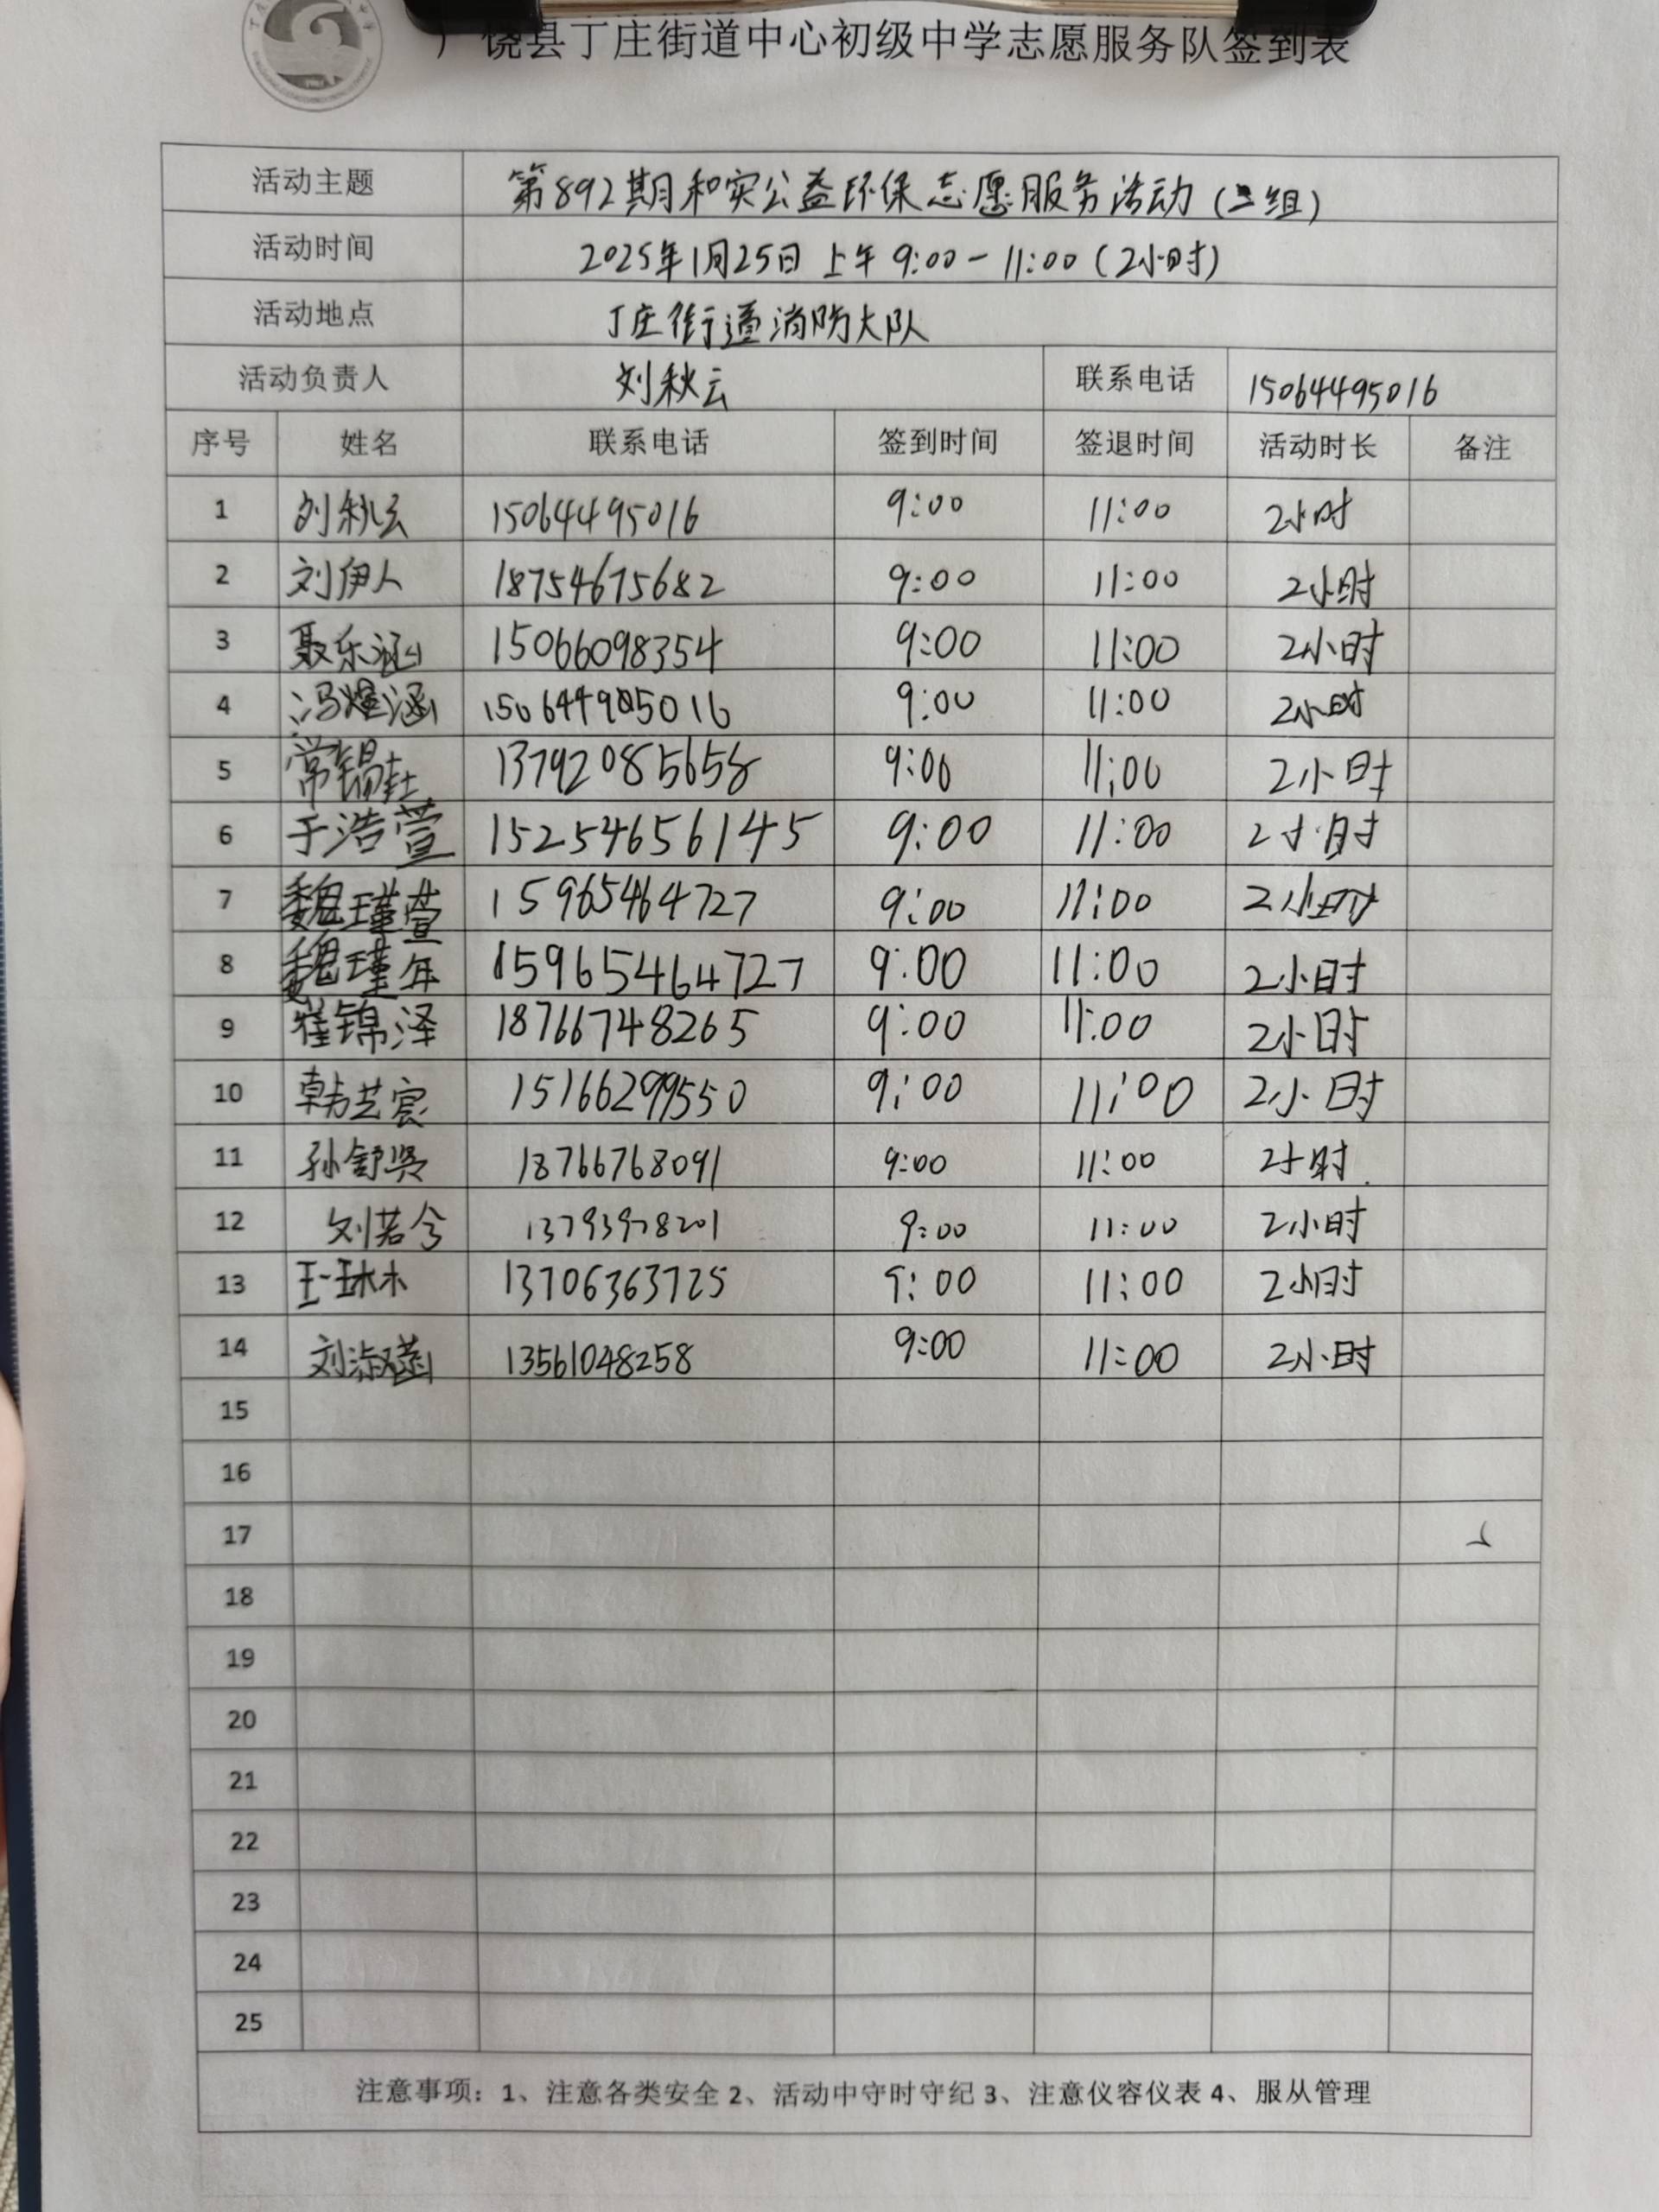 广饶县丁庄街道中心初级中学志愿服务队签到表
活动主题 第892期和实公益环保志愿服务活动(二组)
活动时间 2025年1月25日 上午 9:00-11:00(2小时)
活动地点 丁庄街道消防大队
活动负责人 刘秋云 联系电话 15064495016
序号 姓名 联系电话 签到时间 签退时间 活动时长 备注
1 刘秋云 15064495016 9:00 11:00 2小时
2 刘伊人 18754675682 9:00 11:00 2小时
3 聂乐涵 15066098354 9:00 11:00 2小时
4 冯煜涵 9:00 11:00 2小时
5 常锡 13792085658 9:00 11:00 2小时
6 于浩萱 15254656145 9:00 11:00 2小时
7 魏瑾萱 15965464727 9:00 11:00 2小时
8 魏瑾年 15965464727 9:00 11:00 2小时
9 崔锦泽 18766748265 9:00 11:00 2小时
10 韩艺宸 15166299550 9:00 11:00 2小时
11 孙舒贤 18766768091 9:00 11:00 2小时
12 刘若兮 13793978201 9:00 11:00 2小时
13 王一琳 13706363725 9:00 11:00 2小时
14 刘淑菡 13561048258 9:00 11:00 2小时
15
16
17
18
19
20
21
22
23
24
25
注意事项：1、注意各类安全 2、活动中守时守纪 3、注意仪容仪表 4、服从管理